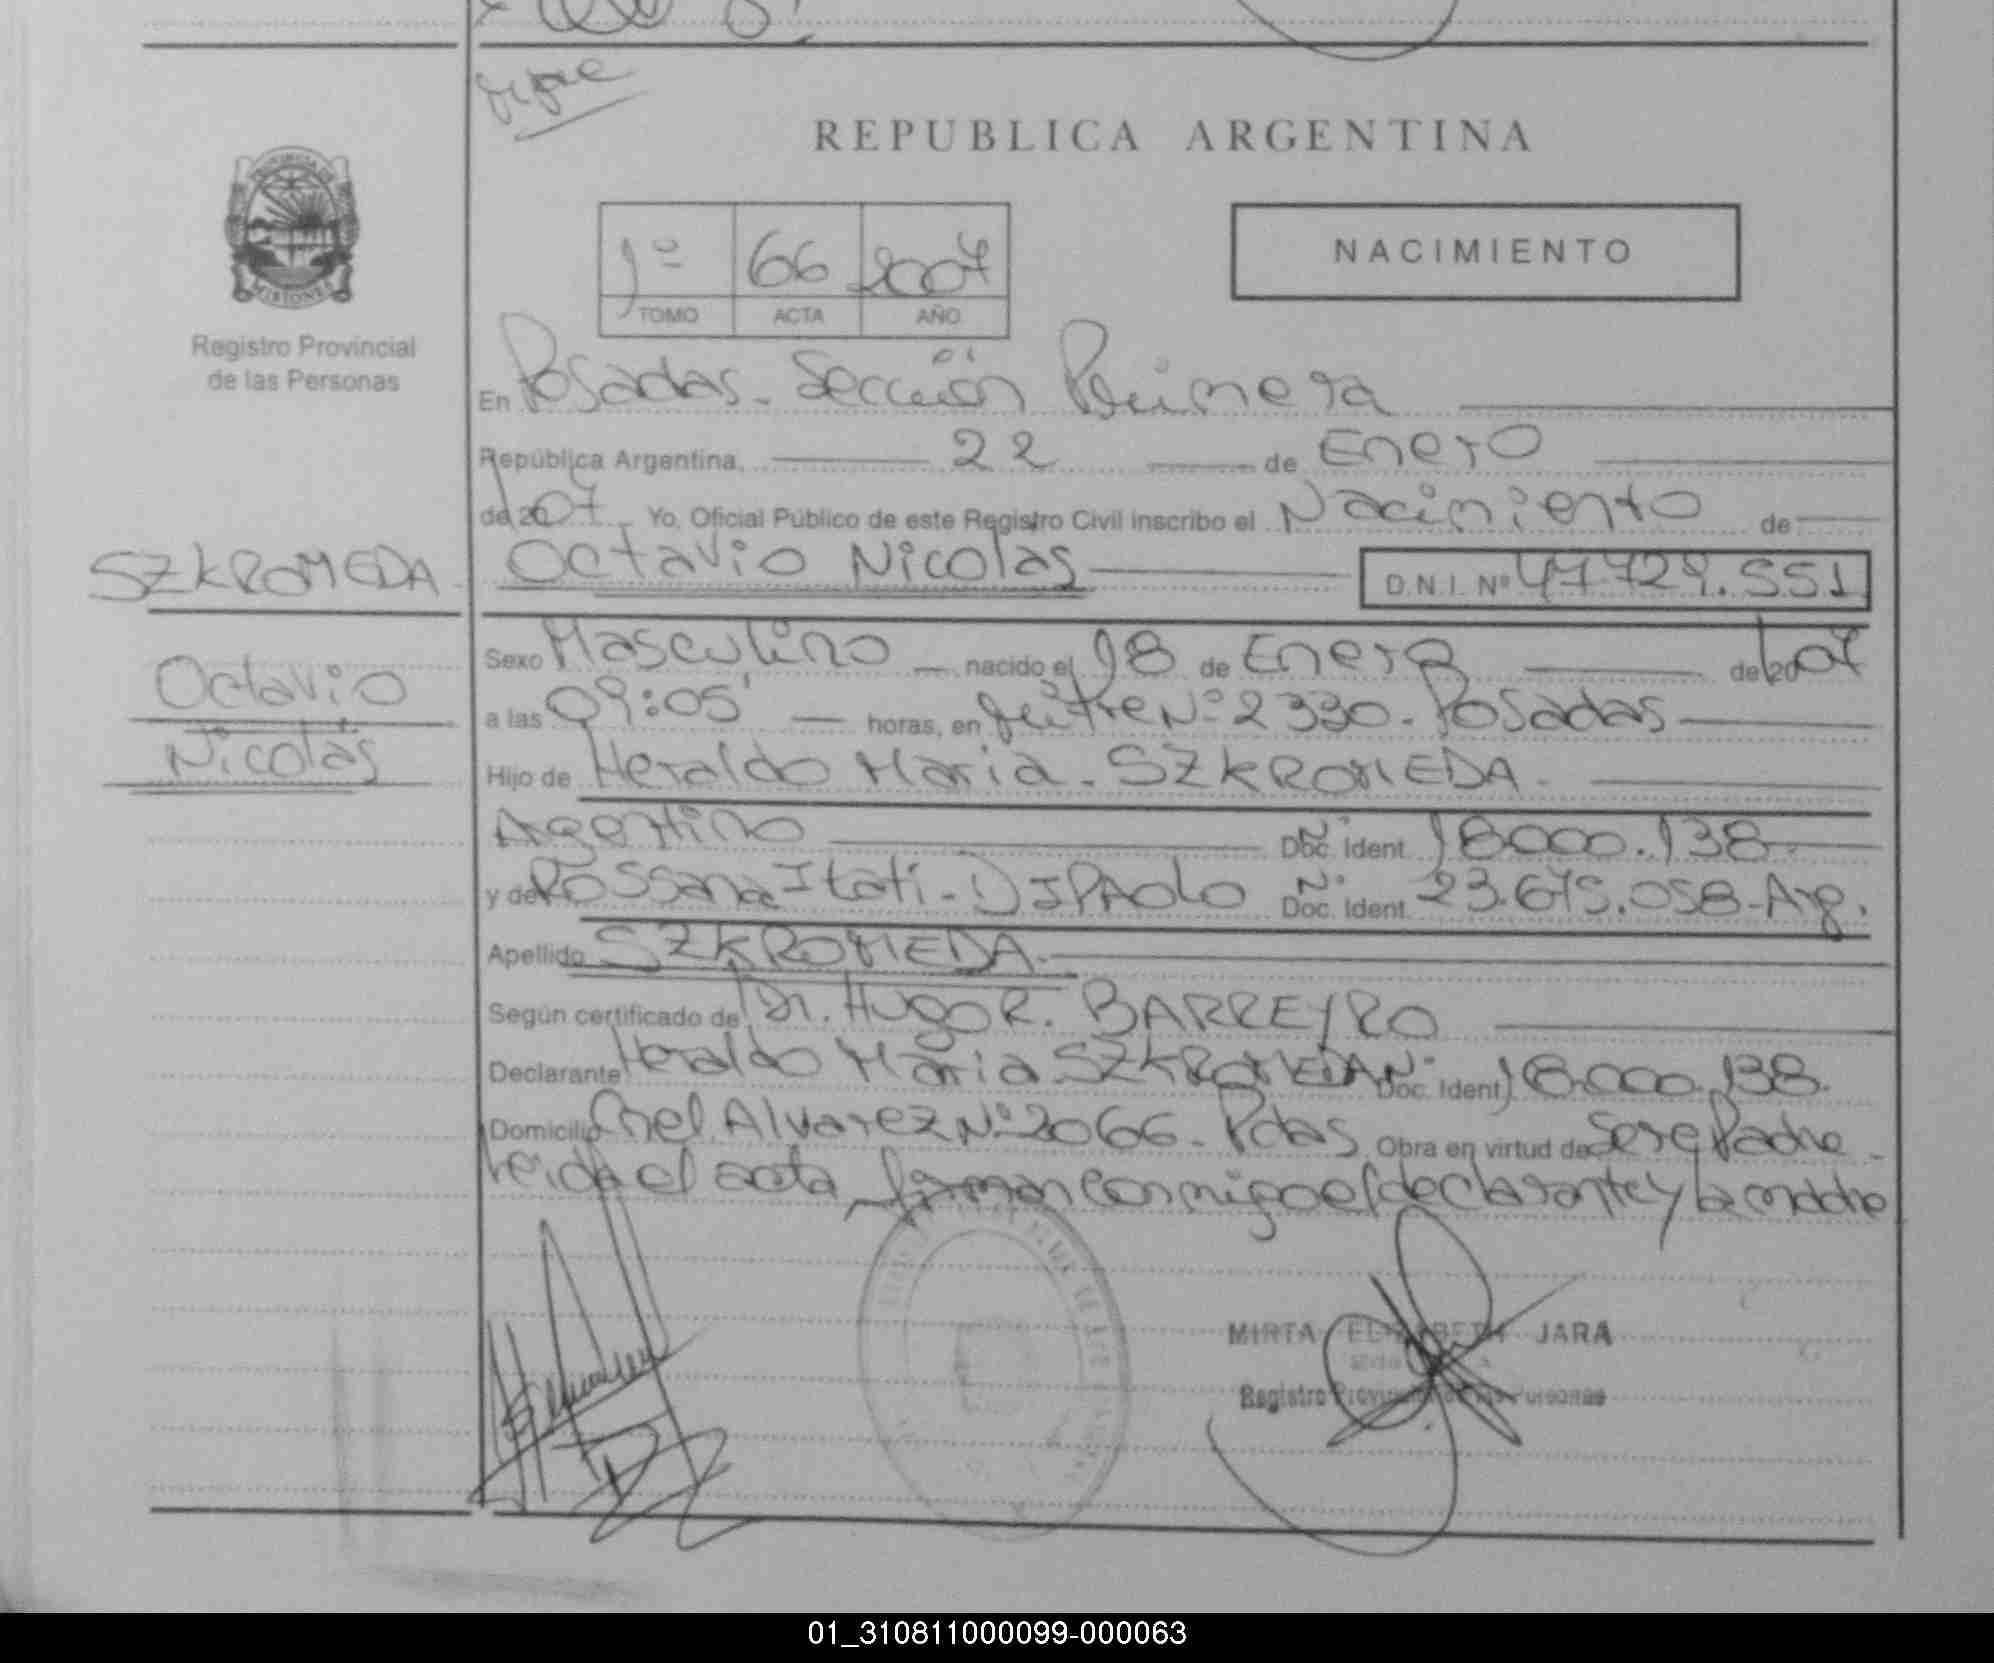 Sigue
REPUBLICA ARGENTINA
PROVINCIA DE
MISIONES
Registro Provincial
de las Personas
1º 66 2007
TOMO ACTA AÑO
NACIMIENTO
En Posadas. Sección Primera
República Argentina, 22 de Enero
de 2007 Yo, Oficial Público de este Registro Civil inscribo el Nacimiento de
SZKROMEDA
Octavio Nicolas D.N.I. Nº 47.729.551
Octavio
Nicolás
Sexo Masculino nacido el 18 de Enero de 2007
a las 09:05' horas, en Nº 2330. Posadas
Hijo de Heraldo Maria. SZKROMEDA.
Argentino Doc. Ident. Nº 18.000.138
y de Rossana Itati - DIPAOLO Doc. Ident. Nº 23.675.058-Arg.
Apellido SZKROMEDA.
Según certificado de Dr. Hugo R. BARREYRO
Declarante Heraldo Maria SZKROMEDA Nº Doc. Ident. 18.000.138.
Domicilio Cnel. Alvarez Nº 2066. Pdas. Obra en virtud de Ser el Padre
Leida el acta firman conmigo el declarante y la madre
MIRTA ELIZABETH JARA
Registro Provincial de las Personas
01_310811000099-000063